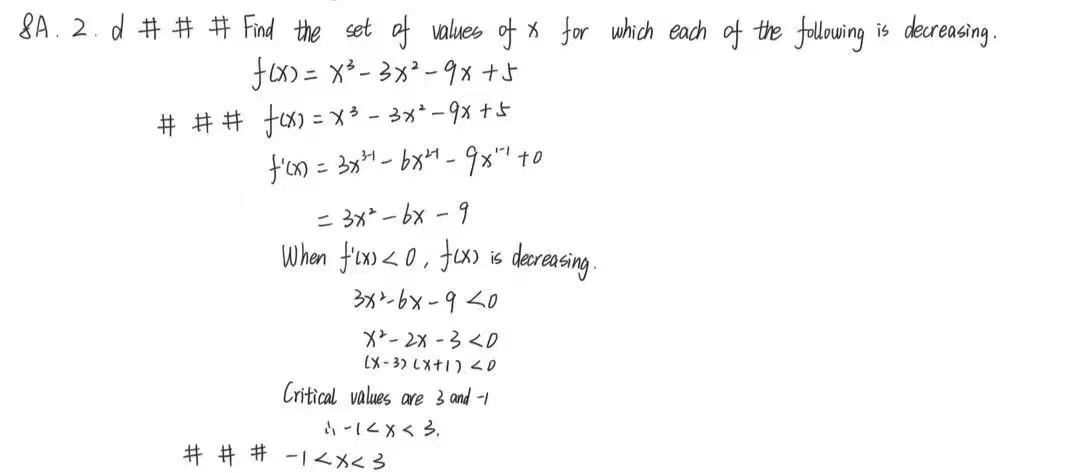 8A. 2. d # # # Find the set of values of x for which each of the following is decreasing.
f(x) = x³ - 3x² - 9x + 5
# # # f(x) = x³ - 3x² - 9x + 5
f'(x) = 3x³⁻¹ - 6x²⁻¹ - 9x¹⁻¹ + 0
= 3x² - 6x - 9
When f'(x) < 0, f(x) is decreasing.
3x² - 6x - 9 < 0
x² - 2x - 3 < 0
(x - 3) (x + 1) < 0
Critical values are 3 and -1
∴ -1 < x < 3.
# # # -1 < x < 3